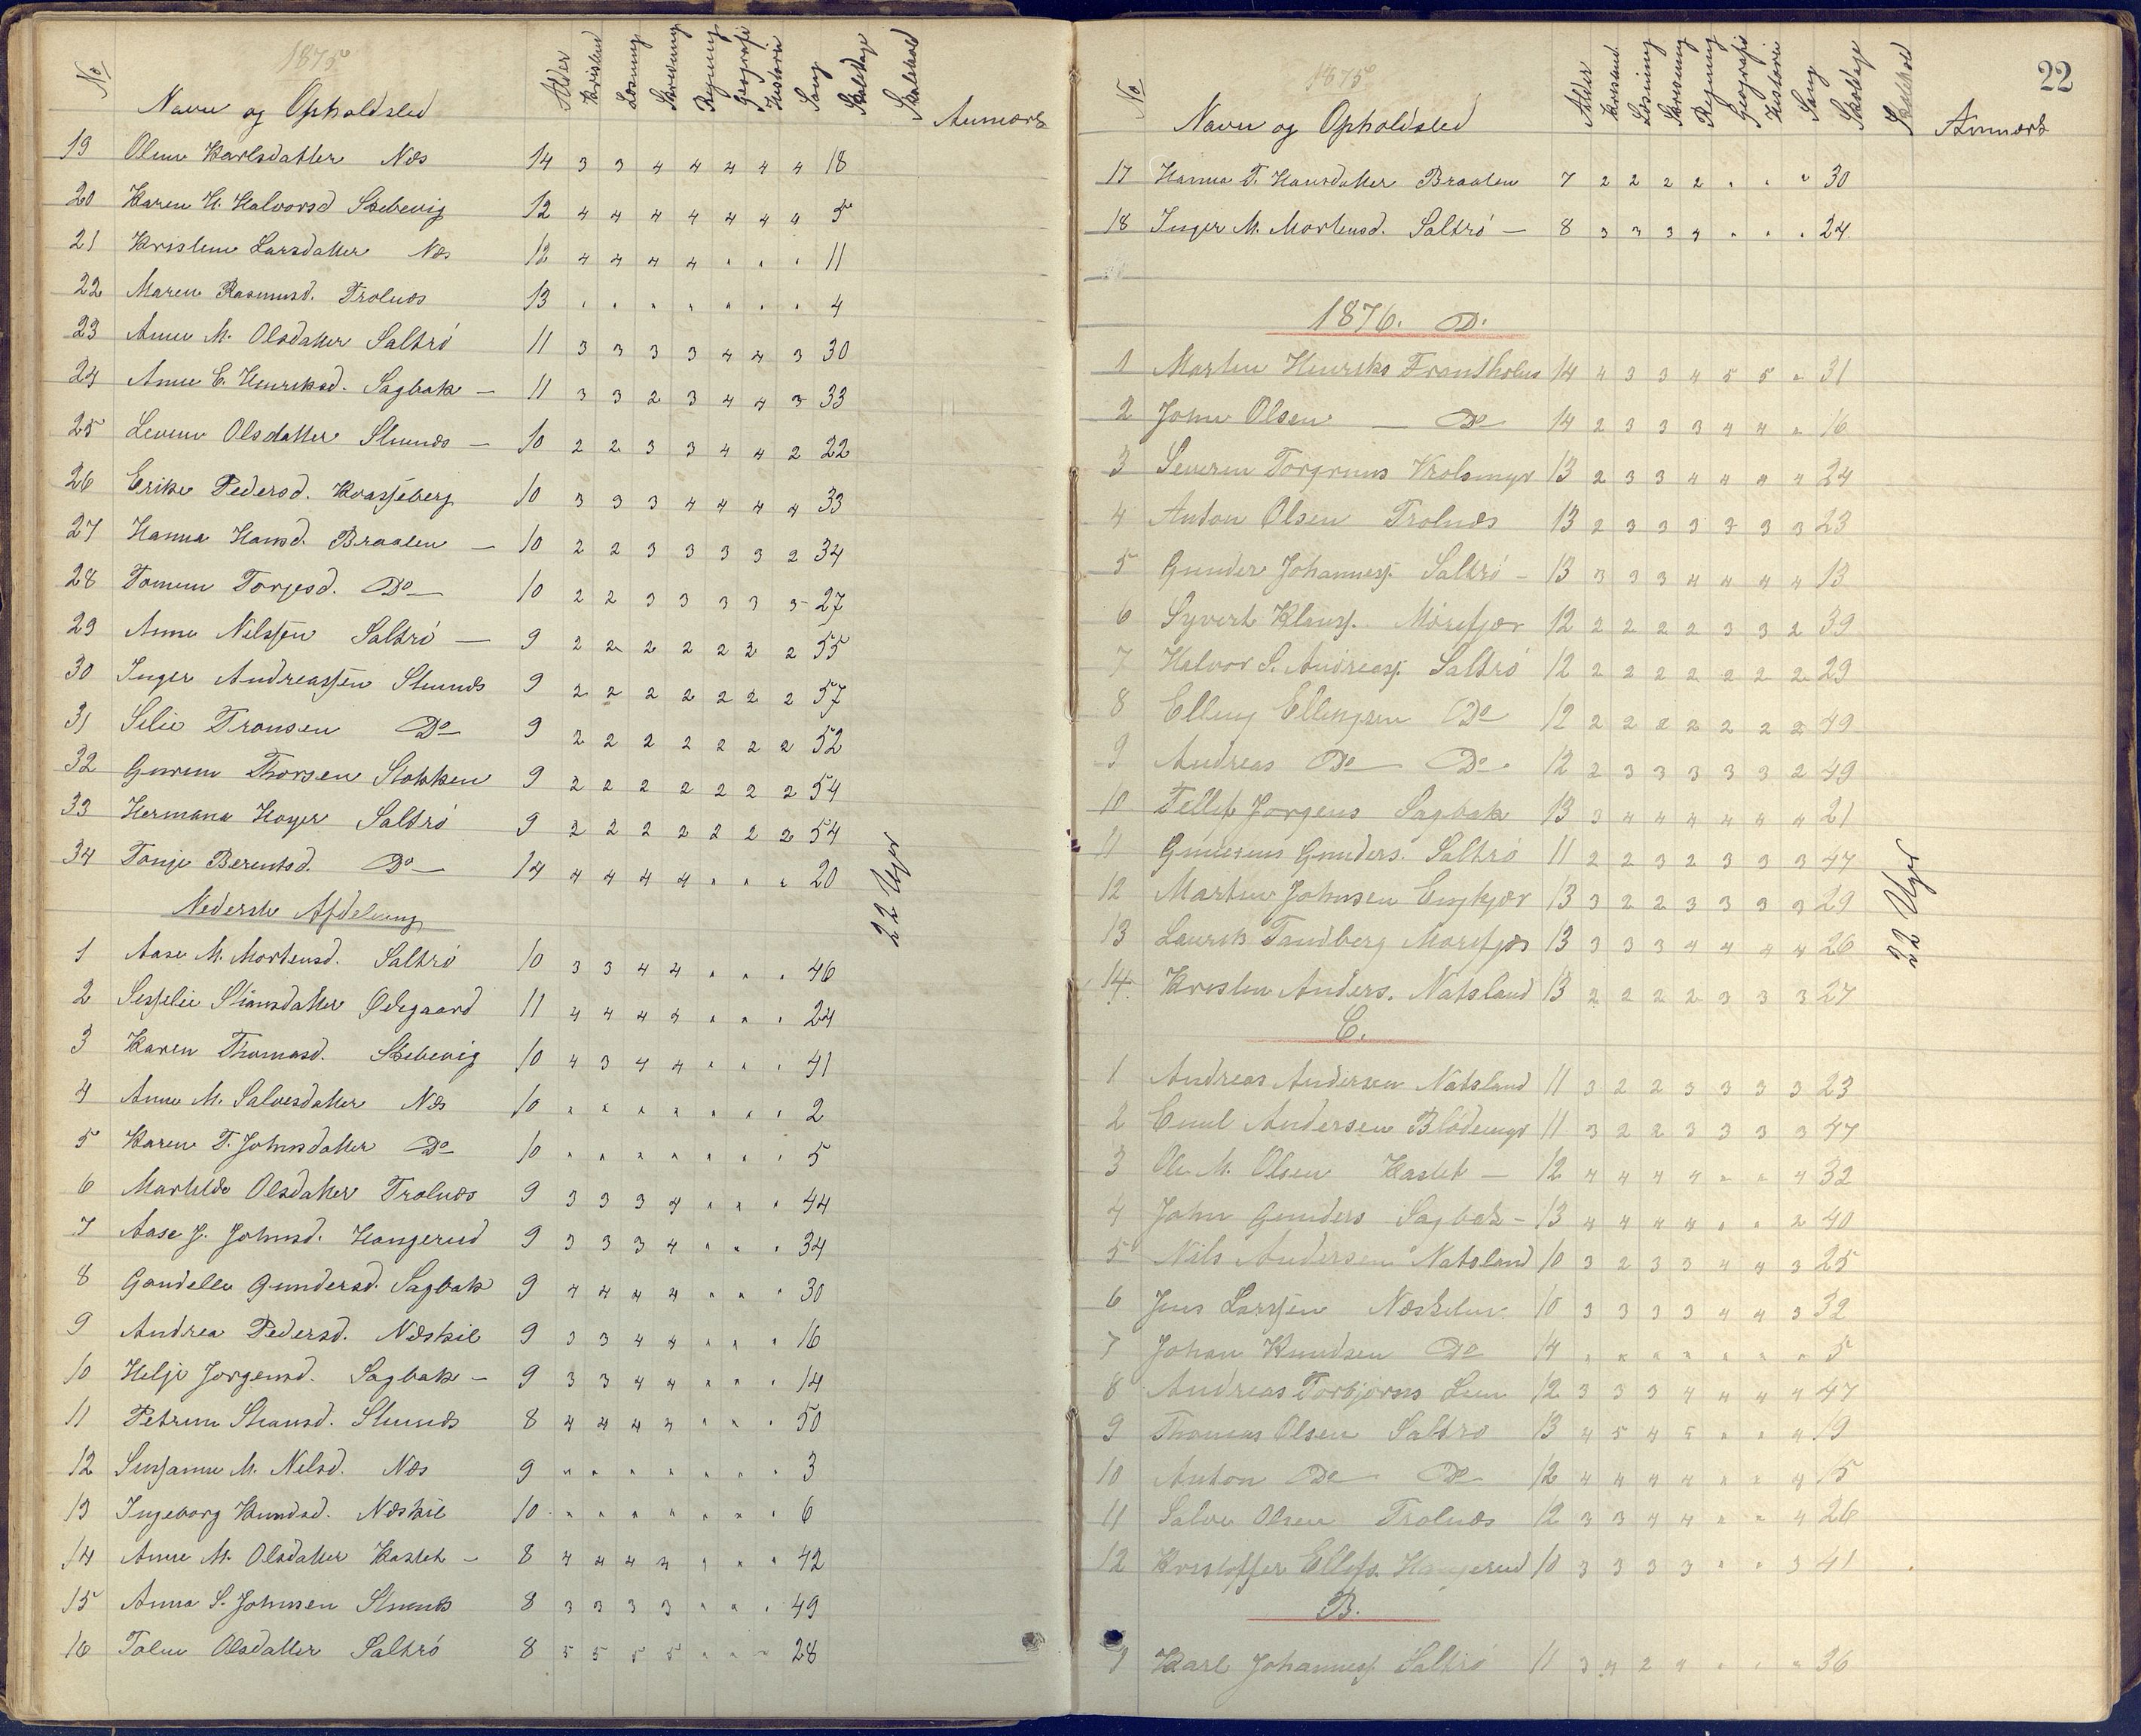 1875
No Navn og Opholdsted Alder Kristend Læsning Skrivning Regning Geografi Historie Sang Skoledage Skolehold Anmærk
19 Oline Karlsdatter Næs 14 3 3 4 4 4 4 4 18
20 Karen H. Halvorsd Stebevig 12 4 4 4 4 4 4 4 5
21 Kristine Larsdatter Næs 12 4 4 4 4 " " " 11
22 Maren Rasmusd. Trolnæs 13 " " " " " " " 4
23 Anne M. Olsdatter Saltrö 11 3 3 3 3 4 4 3 30
24 Anne E. Henriksd. Sagbak — 11 3 3 2 3 4 4 3 33
25 Levine Olsdatter Stuenæs — 10 2 2 3 3 4 4 2 22
26 Erike Pedersd. Kvasfeberg 10 3 3 3 4 4 4 4 33
27 Hanna Hansd. Braaten — 10 2 2 3 3 3 3 2 34
28 Tomine Torjesd. Do — 10 2 2 3 3 3 3 3 27
29 Anne Nilssen Saltrö — 9 2 2 2 2 2 2 2 55
30 Inger Andreassen Stuenæs 9 2 2 2 2 2 2 2 57
31 Silie Transen Do 9 2 2 2 2 2 2 2 52
32 Gurine Thorsen Stokken 9 2 2 2 2 2 2 2 54
33 Hermana Hoyer Saltrö 9 2 2 2 2 2 2 2 54
34 Tonje Berentsd. Do — 14 4 4 4 4 " " " 20
22 Uger
Nederste Afdeling
1 Aase M. Mortensd. Saltrö 10 3 3 4 4 " " " 46
2 Sesselie Stiansdatter Ødegaard 11 4 4 4 4 " " " 24
3 Karen Thomasd. Stebevig 10 4 3 4 4 " " " 41
4 Anne M. Salvesdatter Næs 10 " " " " " " " 2
5 Karen T. Johnsdatter Do 10 " " " " " " " 5
6 Mathilde Olsdatter Trolnæs 9 3 3 3 4 " " " 44
7 Aase J. Johnsd. Hangerud 9 3 3 3 4 " " " 34
8 Gondelle Gundersd. Sagbak 9 4 4 4 4 " " " 30
9 Andrea Pedersd. Næskil 9 3 3 4 4 " " " 16
10 Helje Jorgensd. Sagbak — 9 3 3 4 4 " " " 14
11 Petrine Stiansd. Stuenæs 8 4 4 4 4 " " " 50
12 Susanne M. Nilsd. Næs 9 " " " " " " " 3
13 Ingeborg Knudsd. Næskil 10 " " " " " " " 6
14 Anne M. Olsdatter Kastet — 8 4 4 4 4 " " " 42
15 Anna S. Johnsen Stuenæs 8 3 3 3 3 " " " 49
16 Taline Olsdatter Saltrö 8 5 5 5 5 " " " 28
22
1875
No Navn og Opholdsted Alder Kristend Læsning Skrivning Regning Geografi Historie Sang Skoledage Skolehold Anmærk
17 Hanna T. Hansdatter Braaten 7 2 2 2 2 " " " 30
18 Inger M. Mortensd. Saltrö — 8 3 3 3 4 " " " 24
1876. D.
1 Martin Henriks Frantsholm 14 4 3 3 4 5 5 " 31
2 John Olsen — Do 14 2 3 3 3 4 4 " 16
3 Severin Torgrims Vrolsmyr 13 2 3 3 4 4 4 4 24
4 Anton Olsen Trolnæs 13 2 3 3 3 3 3 3 23
5 Gunder Johanness. Saltrö — 13 3 3 3 4 4 4 4 13
6 Syvert Klauss. Mörefjær 12 2 2 2 2 3 3 2 39
7 Halvor S. Andreass. Saltrö 12 2 2 2 2 2 2 2 29
8 Elling Ellingsen Do 12 2 2 2 2 2 2 2 49
9 Andreas Do Do 12 2 3 3 3 3 3 2 49
10 Tellef Jorgens Sagbak 13 3 4 4 4 4 4 4 21
11 Gunerius Gunders. Saltrö 11 2 2 3 2 3 3 3 47
12 Martin Johnsen Engkjær 13 3 2 2 3 3 3 3 29
13 Laurits Tandberg Morefjær 13 3 3 3 4 4 4 4 26
14 Kresten Anders. Natsland 13 2 2 2 2 3 3 3 27
22 Uger
C.
1 Andreas Andersen Natsland 11 3 2 2 3 3 3 3 23
2 Emil Andersen Blödemyr 11 3 2 2 3 3 3 3 47
3 Ole M. Olsen Kastet — 12 4 4 4 4 " " 4 32
4 John Gunders Sagbak — 13 4 4 4 4 " " 2 40
5 Nils Andersen Natsland 10 3 2 3 3 4 4 3 25
6 Jens Larssen Næskilen 10 3 3 3 3 4 4 3 32
7 Johan Knudsen Do 14 " " " " " " " 5
8 Andreas Torbjörns Lien 12 3 3 3 4 4 4 4 47
9 Thomas Olsen Saltro 13 4 5 4 5 " " 4 19
10 Anton Do Do 12 4 4 4 4 " " 4 15
11 Salve Olsen Trolnæs 12 3 3 4 4 " " 4 26
12 Kristoffer Ellefs. Hangerud 10 3 3 3 3 " " 3 41
B.
1 Karl Johanness. Saltrö 11 3 4 2 4 " " " 36